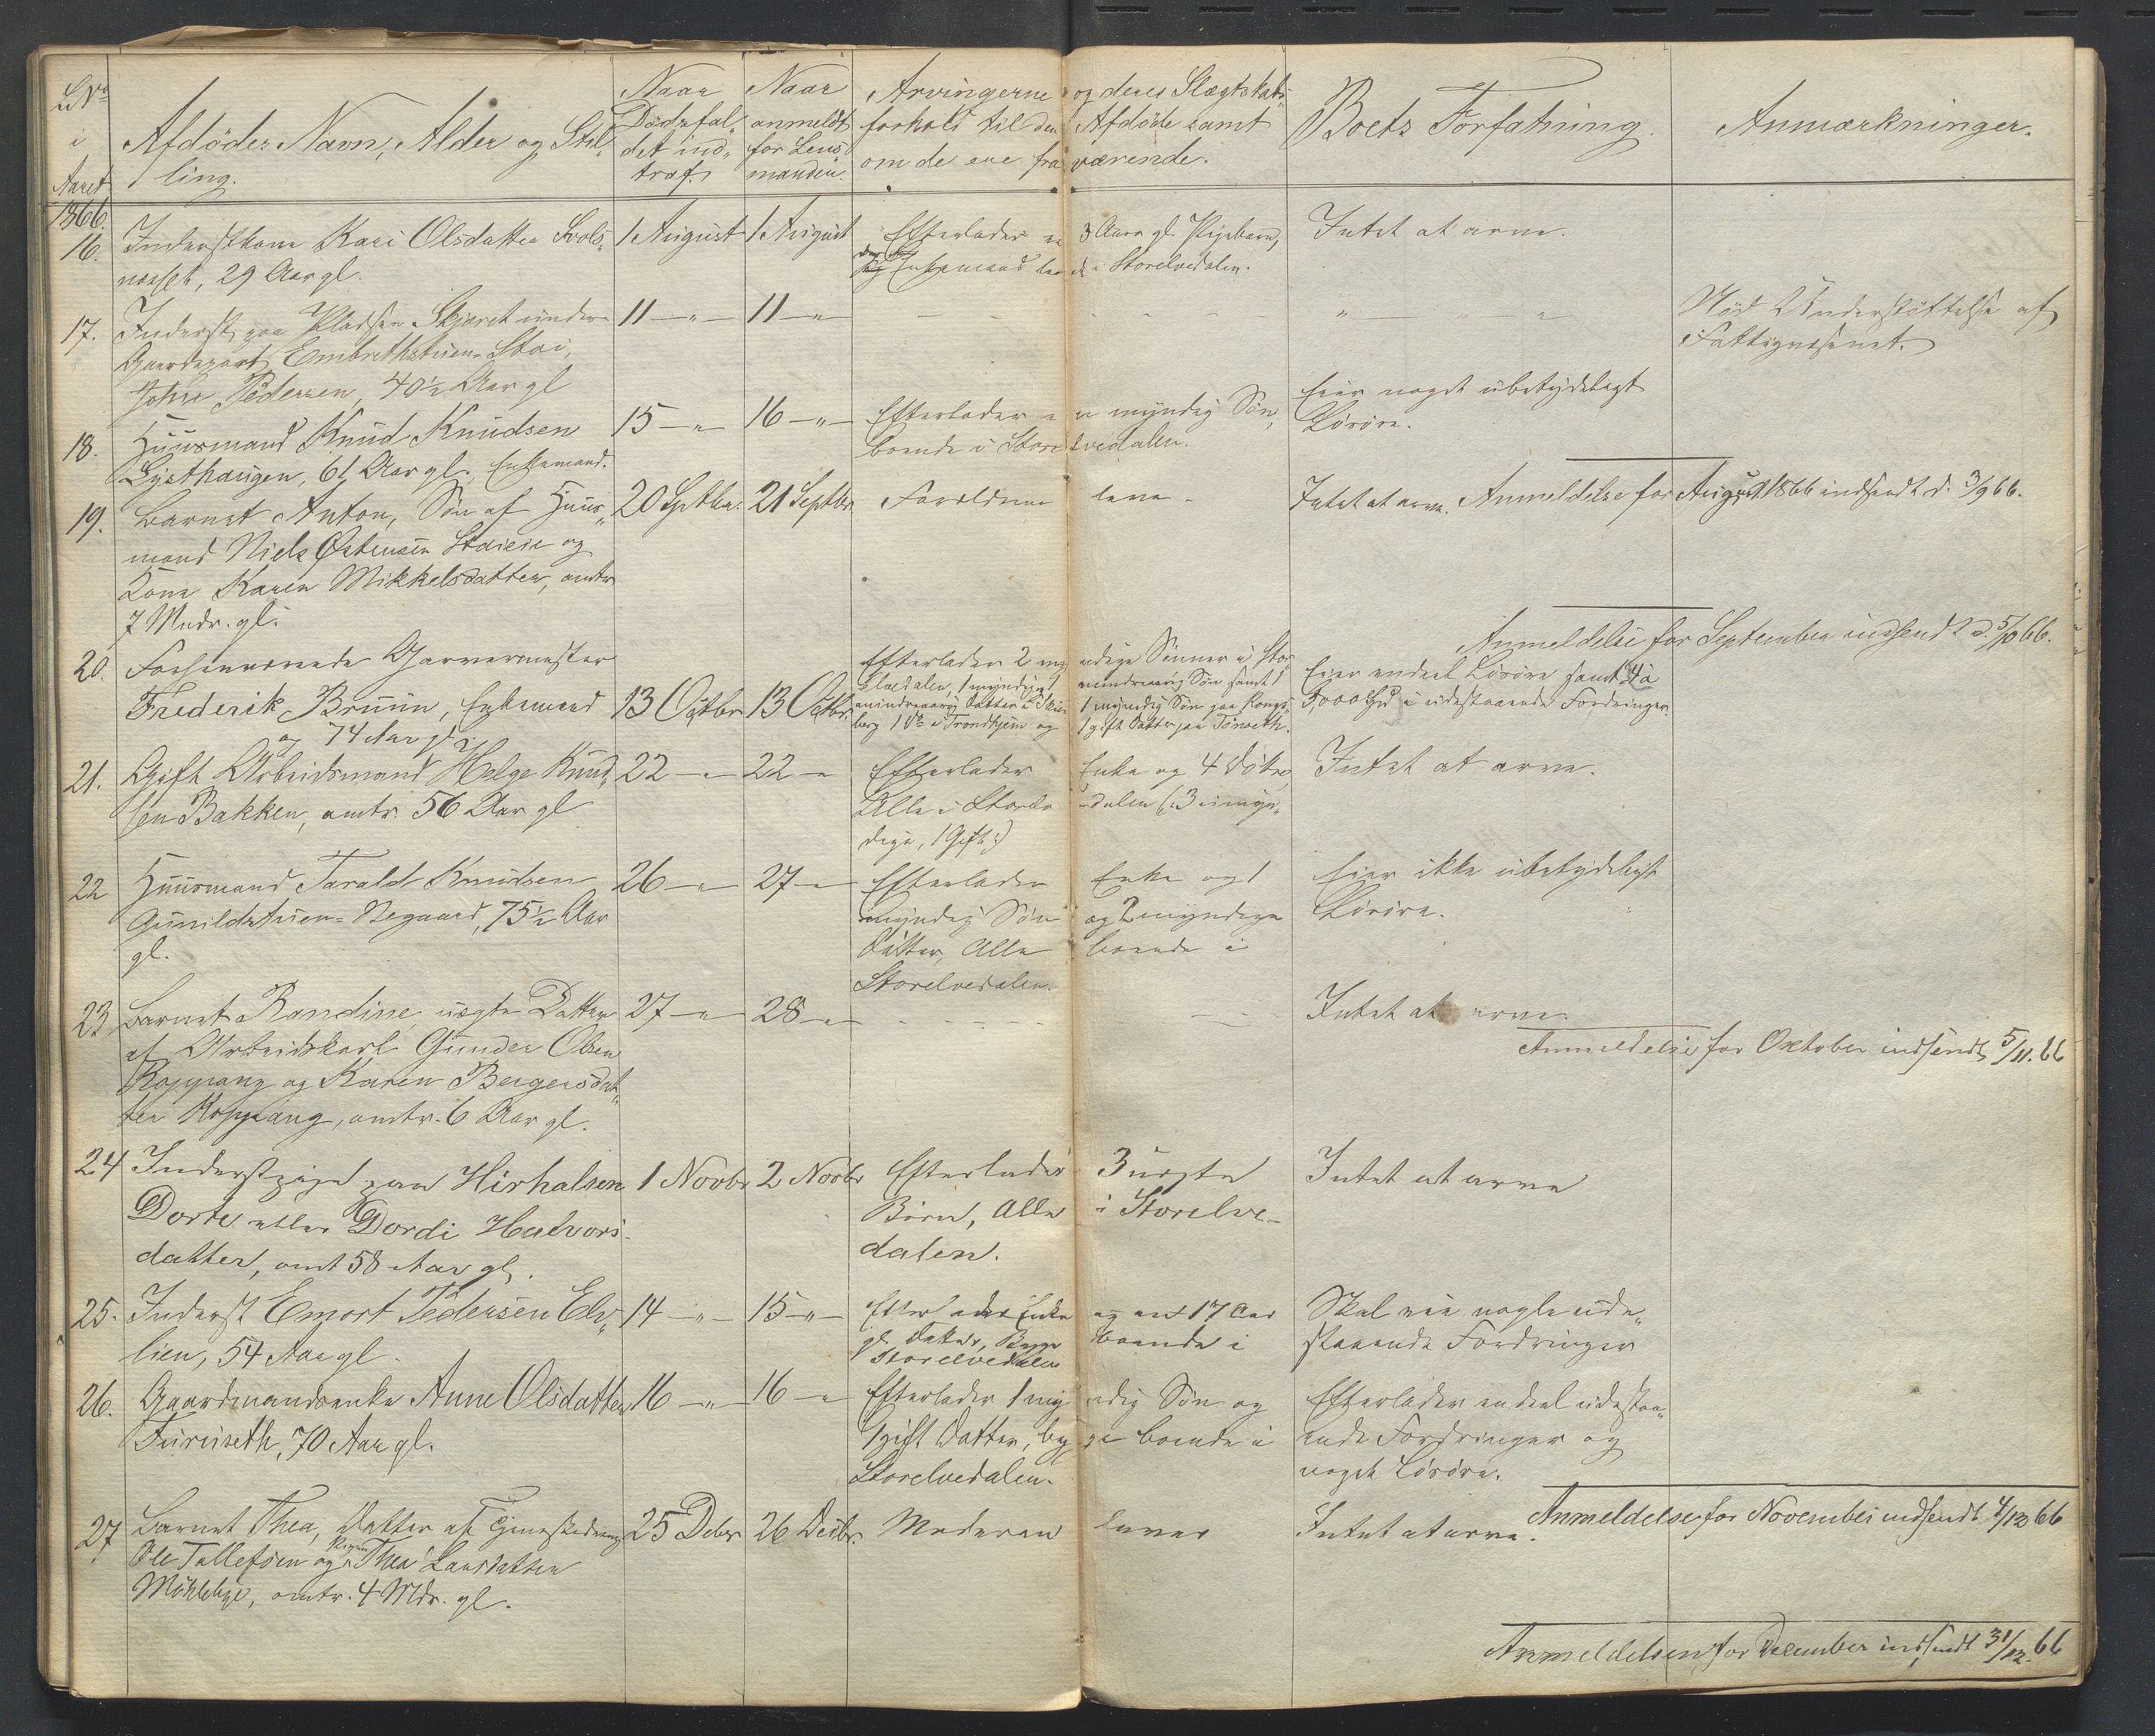 LNo
i
Aaret
1866.
Afdödes Navn, Alder og Stil„
ling.
Naar
Dödsfal„
det ind„
traf.
Naar
anmeldt
for Lens„
manden.
Arvingerne og deres Slægtskabs„
forhold til den Afdöde samt
om de ere fraværende.
Boets Forfatning.
Anmærkninger.
16. Inderstkone Kari Olsdatter
næsset, 29 Aar gl.
1 August
1 August
Efterlader en 3 Aars gl. Pigebarn,
Enkemand i Storelvedalen.
Intet at arve.
17. Inderst paa Pladsen Skjæret under
Gaardepart Embrethstuen-Stai,
John Pedersen, 40½ Aar gl
11 — „ —
11 — „
„ — „ — „
Nöd Understöttelse af
Fattigvæsenet.
18. Huusmand Knud Knudsen
Lysthaugen, 61 Aar gl., Enkemand.
15 — „ —
16 — „ —
Efterlader en myndig Sön,
boende i Storelvedalen.
Eier noget ubetydeligt
Lösöre.
19. Barnet Anton, Sön af Huus„
mand Niels Østensen Staieie og
Kone Karen Mikkelsdatter, omtr
7 Mndr. gl.
20 Septbr.
21 Septbr
Forældrene leve.
Intet at arve.
Anmeldelse for August 1866 indsendt d. 3/9 66.
Anmeldelse for September indsendt d. 5/10 66.
20. Forhenværende Garvermester
Frederik Bruun, Enkemand
og 74 Aar gl.
13 Octbr
13 Octbr.
Efterlader 2 myndige Sönner i Stor„
elvedalen, 1 myndig og 1 mindreaarig Sön samt 1
mindreaarig Datter i 1 myndig Sön paa Kongs„
berg 1 do i Trondhjem og 1 gift Datter paa
Eier endeel Lösöre samt
5,000 Spd i udestaaende Fordringer.
21. Gift Arbeidsmand Helge Knud„
sen Bakken, omtr. 56 Aar gl
22 — „ —
22 — „
Efterlader Enke og 4 Döttre
Alle i Storelvedalen (: 3 umyn„
dige, 1 Gift :)
Intet at arve.
22 Huusmand Tarald Knudsen
Gunildstuen-Negaard, 75½ Aar
gl.
26 — „ —
27 — „
Efterlader Enke og 1
myndig Sön og 2 myndige
Dötter, Alle boende i
Storelvedalen.
Eier ikke ubetydeligt
Lösöre.
23 Barnet Randine, uægte Datter
af Arbeidskarl Gunder Olsen
Koppang og Karen Bergersdat„
ter Koppang, omtr. 6 Aar gl.
27 — „
28 — „
Intet at arve.
Anmeldelse for Oktober indsendt 5/11. 66
24 Inderstpige paa Hirhalsen
Dorte eller Dordi Halvors„
datter, omt 58 Aar gl.
1 Novbr
2 Novbr
Efterlader 3 uægte
Börn, Alle i Storelve„
dalen.
Intet at arve
25. Inderst Emort Pedersen Elv„
lien, 54 Aar gl.
14 — „ —
15 — „ —
Efterlader Enke og en 17 Aar
gl. Datter, Begge boende i
Storelvedalen
Skal eie nogle ude„
staaende Fordringer
26. Gaardmandsenke Anne Olsdatter
Furuseth, 70 Aar gl.
16 — „ —
16 — „
Efterlader 1 myndig Sön og
1 gift Datter, begge boende i
Storelvedalen.
Efterlader endeel udestaa„
ende Fordringer og
noget Lösöre.
Anmeldelse for November indsendt 4/12 66
27. Barnet Thea, Datter af Tjenestedreng
Ole Tollefsen og Pigen Thea Larsdatter
Möklebye, omtr. 4 Mdr. gl.
25 Debr
26 Decbr.
Moderen lever
Intet at arve.
Anmeldelsen for December indsendt 31/12. 66